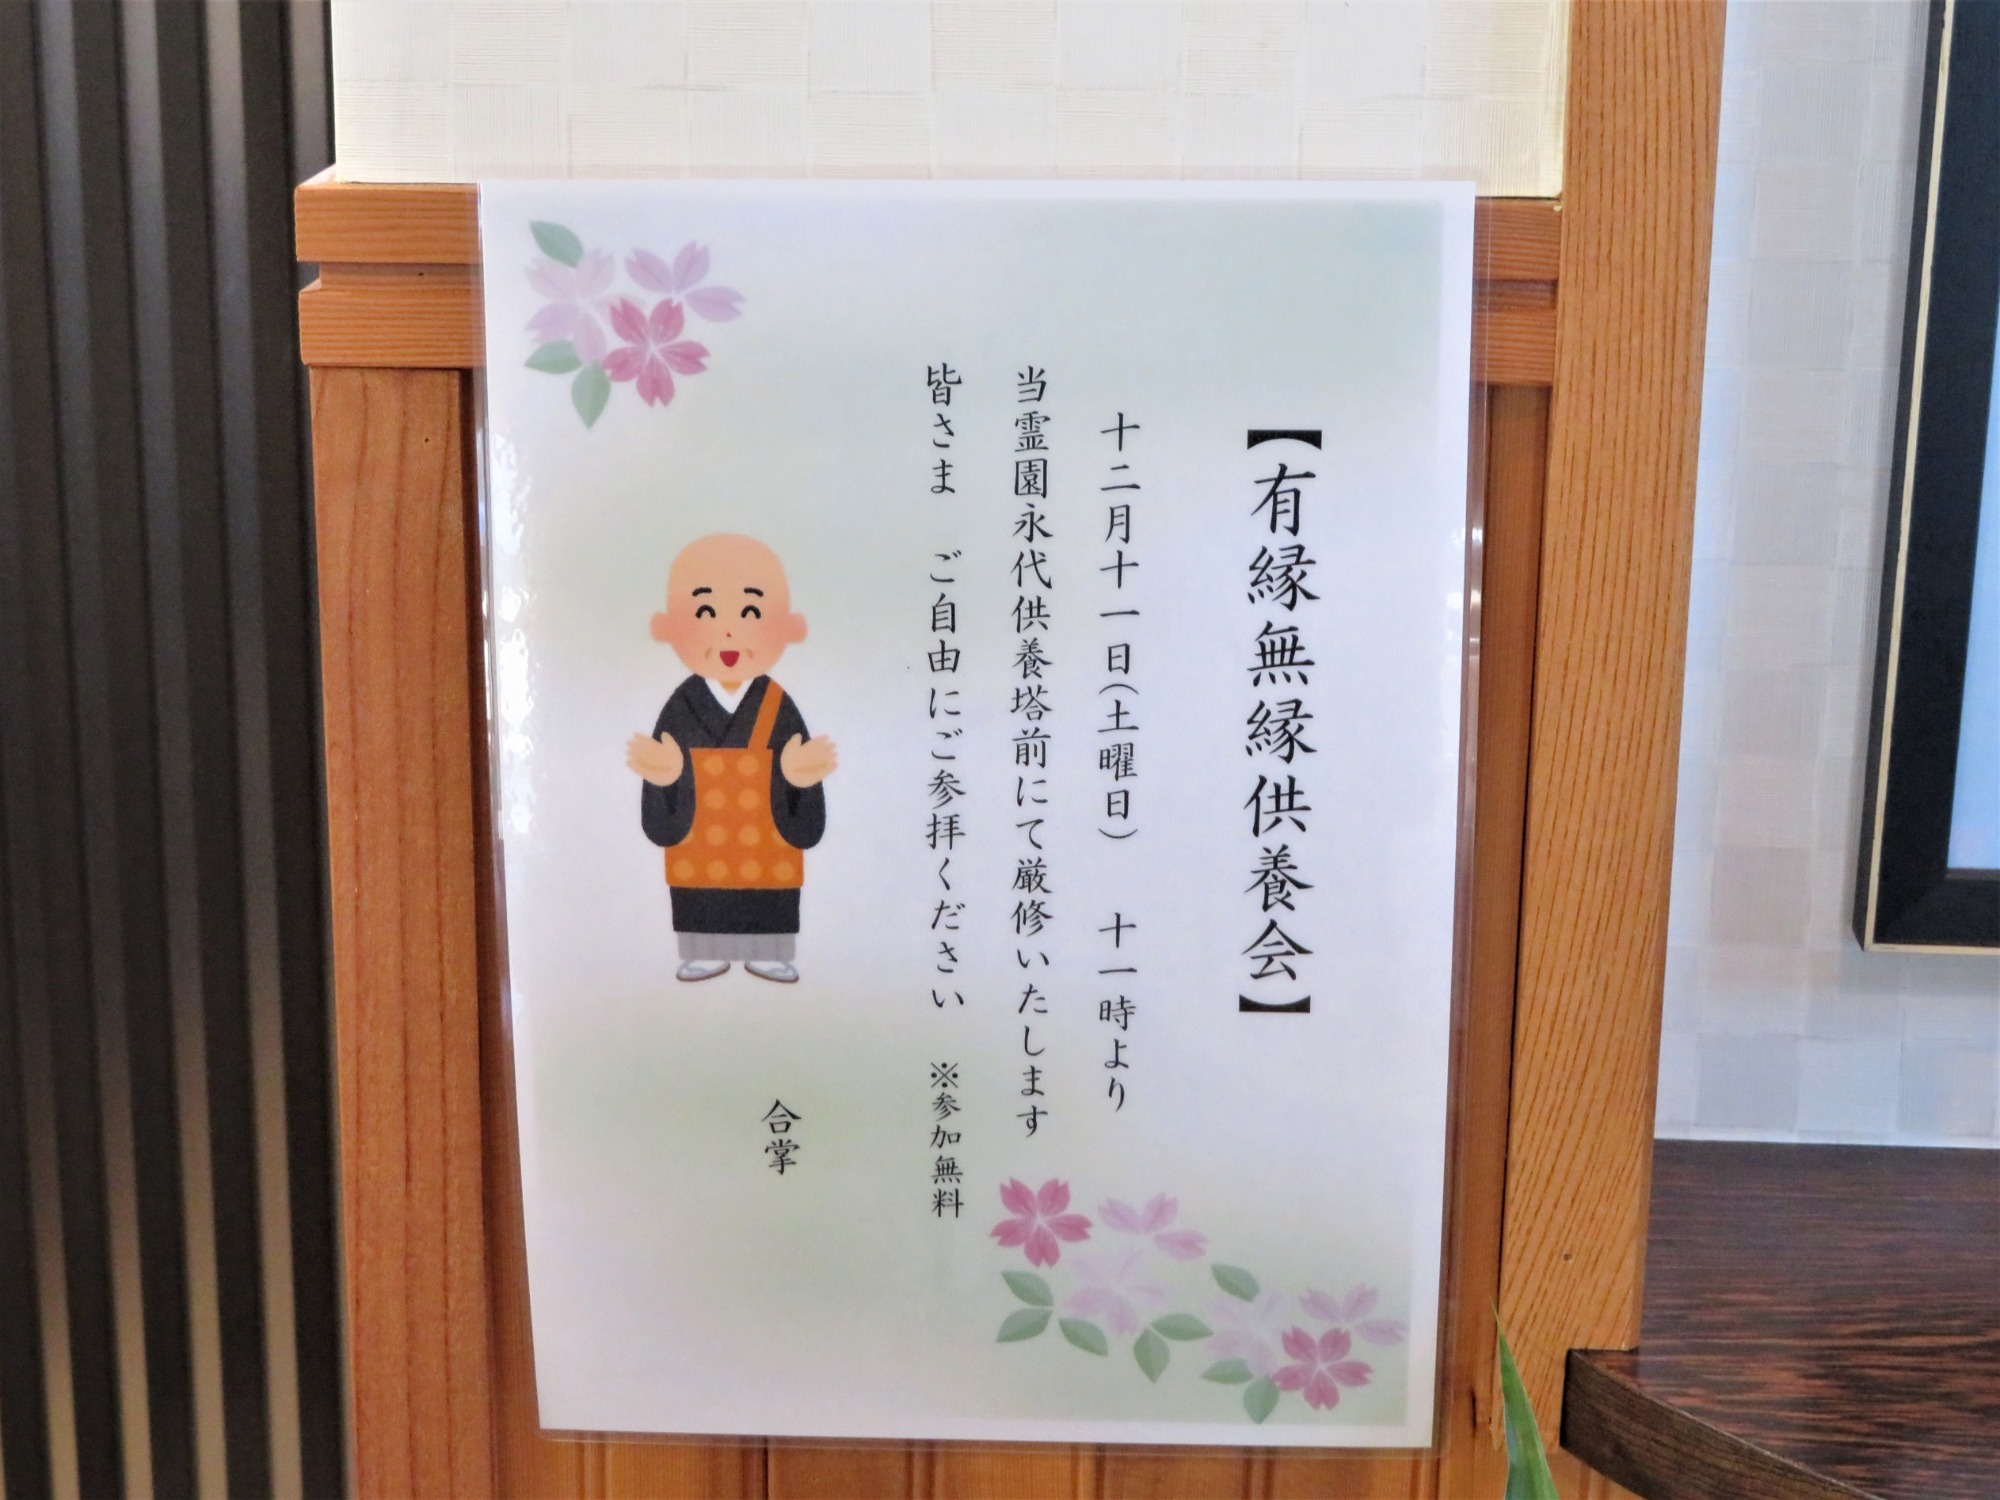 【有縁無縁供養会】
十二月十一日(土曜日)　十一時より
当霊園永代供養塔前にて厳修いたします
皆さま　ご自由にご参拝ください　※参加無料
合掌